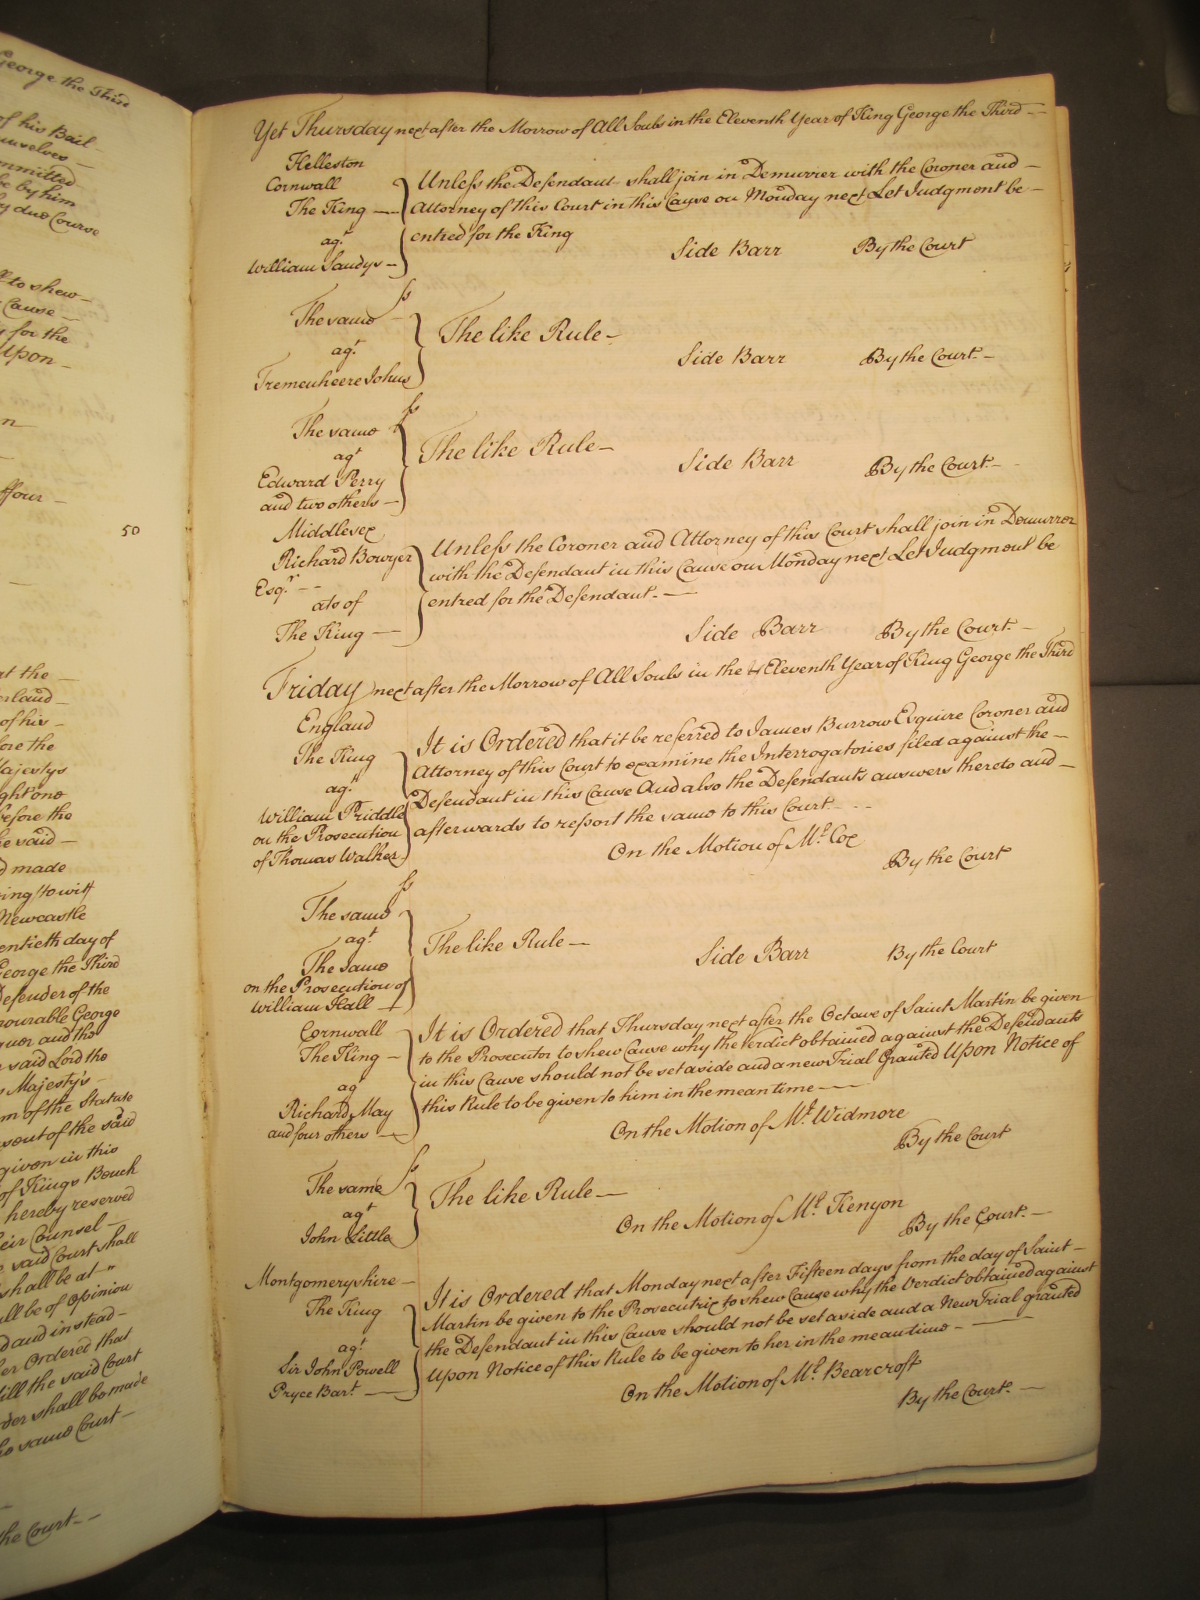 George the Third
of his Bail
ourselves —
ommitted
be by him
by due Course
to shew —
Cause —
for the
Upon —
ffour —
50
at the —
erland —
of his —
fore the
Majestys
ght one
before the
he said —
d made
ing to wit
Newcastle
entieth day of
George the Third
Defender of the
nourable George
quer and the
said Lord the
s Majesty's —
m of the Statute
out of the said
given in this
of Kings Bench
hereby reserved
eir Counsel —
said Court shall
shall be at
ll be of Opinion
d and instead —
er Ordered that
till the said Court
der shall be made
he same Court —
the Court —
Yet Thursday next after the Morrow of All Souls in the Eleventh Year of King George the Third —
Helleston
Cornwall
The King —
agt
William Sandys —
Unless the Defendant shall join in Demurrer with the Coroner and —
Attorney of this Court in this Cause on Monday next Let Judgment be —
entred for the King
Side Barr By the Court
ss
The same —
agt
Tremenheere Johns
The like Rule —
Side Barr By the Court —
ss
The same
agt
Edward Perry
and two others —
The like Rule —
Side Barr By the Court —
Middlesex
Richard Bowyer
Esqr —
ats of
The King —
Unless the Coroner and Attorney of this Court shall join in Demurrer
with the Defendant in this Cause on Monday next Let Judgment be
entred for the Defendant. —
Side Barr By the Court —
Friday next after the Morrow of All Souls in the Eleventh Year of King George the Third
England
The King
agt
William Priddle
on the Prosecution
of Thomas Walker
It is Ordered that it be referred to James Burrow Esquire Coroner and
Attorney of this Court to examine the Interrogatories filed against the —
Defendant in this Cause And also the Defendants answers thereto and —
afterwards to report the same to this Court. —
On the Motion of Mr. Cox
By the Court
ss
The same
agt
The same
on the Prosecution of
William Hall —
The like Rule —
Side Barr By the Court
Cornwall
The King —
agt
Richard May
and four others —
It is Ordered that Thursday next after the Octave of Saint Martin be given
to the Prosecutor to shew Cause why the Verdict obtained against the Defendants
in this Cause should not be set aside and a new Trial Granted Upon Notice of
this Rule to be given to him in the mean time —
On the Motion of Mr. Widmore
By the Court
ss
The same
agt
John Little
The like Rule —
On the Motion of Mr. Kenyon
By the Court. —
Montgomeryshire —
The King
agt
Sir John Powell
Pryce Bart. —
It is Ordered that Monday next after Fifteen days from the day of Saint —
Martin be given to the Prosecutrix to shew Cause why the Verdict obtained against
the Defendant in this Cause should not be set aside and a New Trial granted
Upon Notice of this Rule to be given to her in the mean time — —
On the Motion of Mr. Bearcroft
By the Court. —